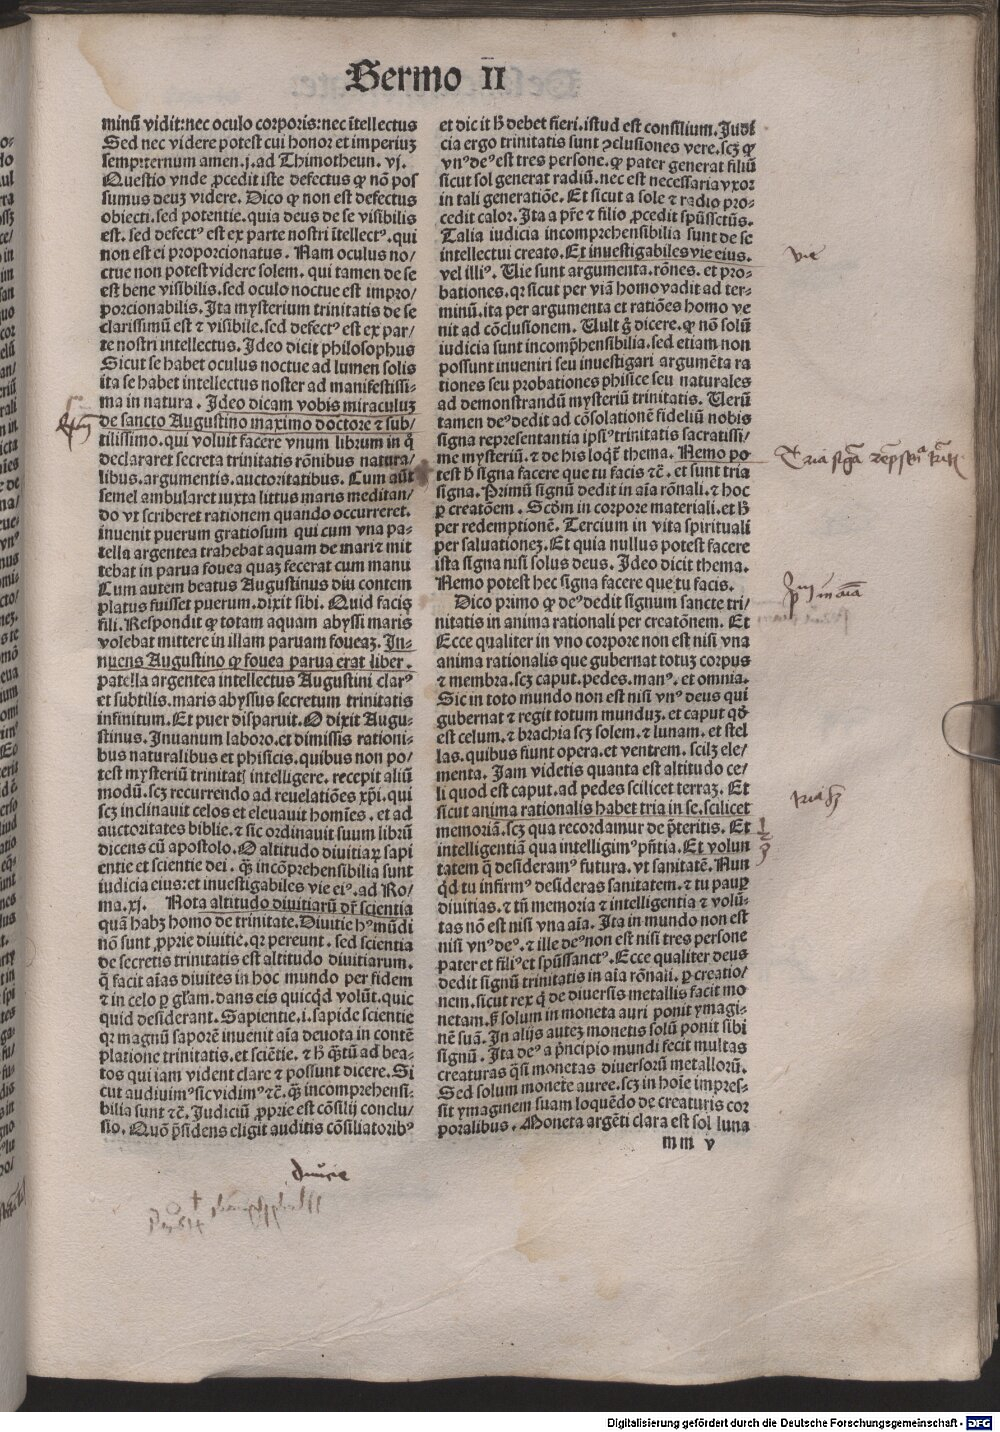 Sermo II
minū vidit:nec oculo corporis:nec ītellectus
Sed nec videre potest cui honor et imperiuꝫ
sempiternum amen.j.ad Thimotheun. vj.
Questio vnde ꝓcedit iste defectus ꝙ nō pos
sumus deuꝫ videre. Dico ꝙ non est defectus
obiecti.sed potentie.quia deus de se visibilis
est. sed defectꝰ est ex parte nostri ītellectꝰ.qui
non est ei proporcionatus. Nam oculus no/
ctue non potest videre solem. qui tamen de se
est bene visibilis.sed oculo noctue est impro/
porcionabilis. Ita mysterium trinitatis de se
clarissimū est ⁊ visibile.sed defectꝰ est ex par/
te nostri intellectus. Ideo dicit philosophus
Sicut se habet oculus noctue ad lumen solis
ita se habet intellectus noster ad manifestissi-
ma in natura. Ideo dicam vobis miraculuꝫ
de sancto Augustino maximo doctore ⁊ sub/
tilissimo.qui voluit facere vnum librum in q̄
declararet secreta trinitatis rōnibus natura/
libus.argumentis.auctoritatibus. Cum aūt
semel ambularet iuxta littus maris meditan/
do vt scriberet rationem quando occurreret.
inuenit puerum gratiosum qui cum vna pa-
tella argentea trahebat aquam de mari⁊ mit
tebat in parua fouea quaꝫ fecerat cum manu
Cum autem beatus Augustinus diu contem
platus fuisset puerum.dixit sibi. Quid facis
fili. Respondit ꝙ totam aquam abyssi maris
volebat mittere in illam paruam foueaꝫ. In-
nuens Augustino ꝙ fouea parua erat liber.
patella argentea intellectus Augustini clarꝰ
et subtilis.maris abyssus secretum trinitatis
infinitum. Et puer disparuit. O dixit Augu-
stinus. Inuanum laboro.et dimissis rationi-
bus naturalibus et phisicis.quibus non po/
test mysteriū trinitatꝭ intelligere. recepit aliū
modū.scꝫ recurrendo ad reuelatiōes xp̄i. qui
scꝫ inclinauit celos et eleuauit homīes. et ad
auctoritates biblie.⁊ sic ordinauit suum librū
dicens cū apostolo. O altitudo diuitiaꝝ sapi
entie et scientie dei. q̄ꝫ incōprehensibilia sunt
iudicia eius:et inuestigabiles vie eiꝰ.ad Ro/
ma.xj. Nota altitudo diuitiarū dr̄ scientia
quā habꝫ homo de trinitate. Diuitie hꝰ mūdi
nō sunt ꝓprie diuitie.qr pereunt. sed scientia
de secretis trinitatis est altitudo diuitiarum.
q̄ facit aīas diuites in hoc mundo per fidem
⁊ in celo ꝑ gl̄am.dans eis quicq̄d volūt.quic
quid desiderant. Sapientie.i.sapide scientie
qr magnū saporē inuenit aīa deuota in contē
platione trinitatis.et sciētie. ⁊ ꝧ q̄ꝫtū ad bea-
tos qui iam vident clare ⁊ possunt dicere. Si
cut audiuimꝰ sic vidimꝰ ⁊c̄. q̄ꝫ incomprehensi-
bilia sunt ⁊c̄. Judiciū ꝓprie est cōsilij conclu/
sio. Quō p̄sidens eligit auditis cōsiliatoribꝰ
et dicit ꝧ debet fieri.istud est consilium. Judi
cia ergo trinitatis sunt ꝯclusiones vere.scꝫ ꝙ
vnꝰ deꝰ est tres persone. ꝙ pater generat filiū
sicut sol generat radiū. nec est necessaria vxor
in tali generatiōe. Et sicut a sole ⁊ radio pro-
cedit calor. Ita a pr̄e ⁊ filio ꝓcedit spūssctūs.
Talia iudicia incomprehensibilia sunt de se
intellectui creato. Et inuestigabiles vie eius.
vel illiꝰ. Vie sunt argumenta. rōnes. et pro-
bationes. qr sicut per viā homo vadit ad ter-
minū. ita per argumenta et ratiōes homo ve
nit ad cōclusionem. Vult ḡ dicere. ꝙ nō solū
iudicia sunt incomp̄hensibilia.sed etiam non
possunt inueniri seu inuestigari argumēta ra
tiones seu probationes phisice seu naturales
ad demonstrandū mysteriū trinitatis. Verū
tamen deꝰ dedit ad cōsolationē fideliū nobis
signa representantia ipsiꝰ trinitatis sacratissi/
me mysteriū.⁊ de his loqr̄ thema. Nemo po
test ꝧ signa facere que tu facis ⁊c̄. et sunt tria
signa. Primū signū dedit in aīa rōnali. ⁊ hoc
ꝑ creatōem. Scd̄m in corpore materiali.et ꝧ
per redemptionē. Tercium in vita spirituali
per saluationeꝫ. Et quia nullus potest facere
ista signa nisi solus deus. Ideo dicit thema.
Nemo potest hec signa facere que tu facis.
Dico primo ꝙ deꝰ dedit signum sancte tri/
nitatis in anima rationali per creatōnem. Et
Ecce qualiter in vno corpore non est nisi vna
anima rationalis que gubernat totuꝫ corpus
⁊ membra.scꝫ caput.pedes.manꝰ. et omnia.
Sic in toto mundo non est nisi vnꝰ deus qui
gubernat ⁊ regit totum munduꝫ. et caput qd̄
est celum. ⁊ brachia scꝫ solem. ⁊ lunam. et stel
las. quibus fiunt opera.et ventrem. scilꝫ ele/
menta. Jam videtis quanta est altitudo ce/
li quod est caput.ad pedes scilicet terraꝫ. Et
sicut anima rationalis habet tria in se.scilicet
memoriā.scꝫ qua recordamur de p̄teritis. Et
intelligentiā qua intelligimꝰ p̄ntia. Et volun
tatem q̄ desideramꝰ futura. vt sanitatē. Nun
qd̄ tu infirmꝰ desideras sanitatem. ⁊ tu paupꝑ
diuitias. ⁊ tn̄ memoria ⁊ intelligentia ⁊ volū-
tas nō est nisi vna aīa. Ita in mundo non est
nisi vnꝰ deꝰ. ⁊ ille deꝰ non est nisi tres persone
pater et filiꝰ et spūssanctꝰ. Ecce qualiter deus
dedit signū trinitatis in aīa rōnali. ꝑ creatio/
nem. sicut rex q̄ de diuersis metallis facit mo
netam. sꝫ solum in moneta auri ponit ymagi-
nē suā. In alijs auteꝫ monetis solū ponit sibi
signū. Ita deꝰ a p̄ncipio mundi fecit multas
creaturas q̄si monetas diuersorū metallorū.
Sed solum monete auree.scꝫ in hoīe impres-
sit ymaginem suam loquēdo de creaturis cor
poralibus. Moneta argēti clara est sol luna
mm v
vie
Tria
diuitie
Digitalisierung gefördert durch die Deutsche Forschungsgemeinschaft - DFG